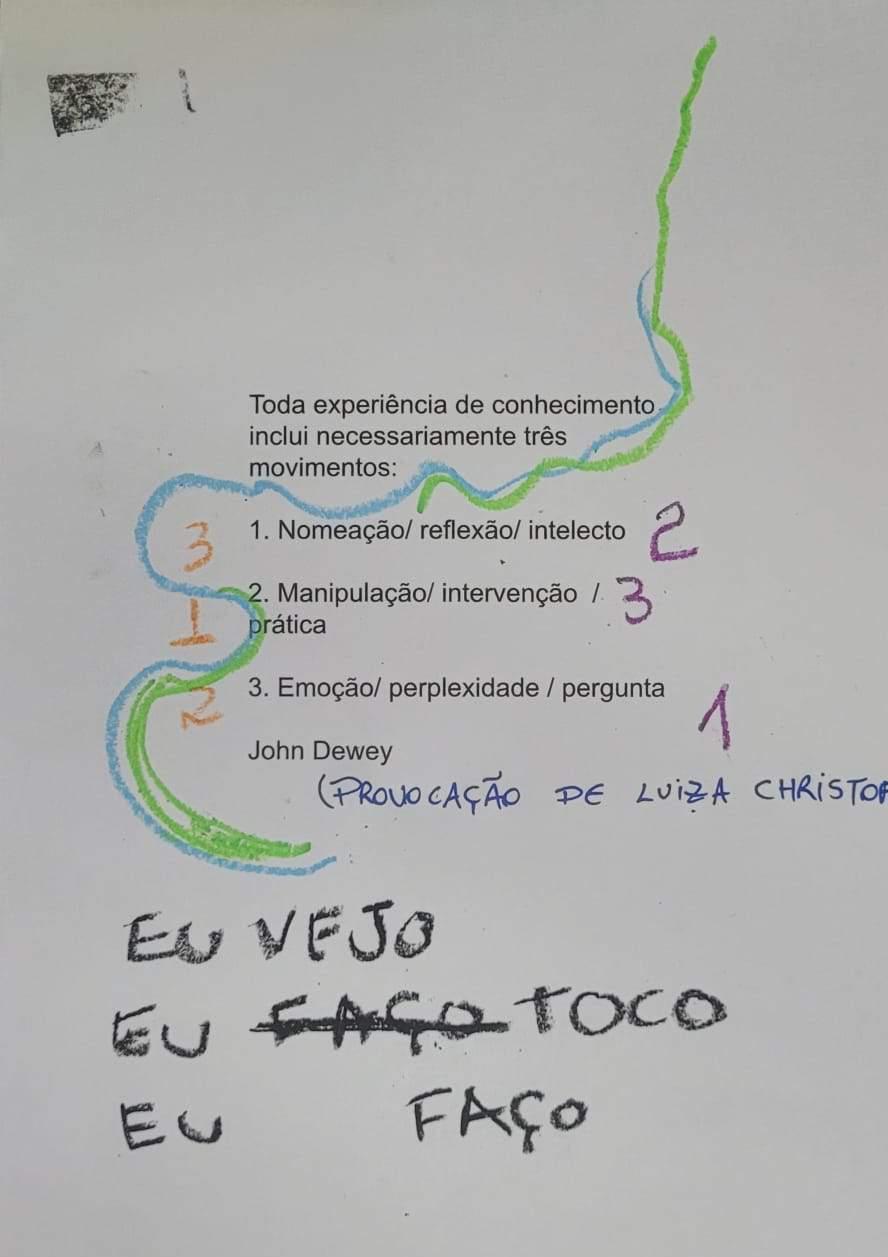 Toda experiência de conhecimento
inclui necessariamente três
movimentos:
3 1. Nomeação/ reflexão/ intelecto 2
1 2. Manipulação/ intervenção / 3
prática
2 3. Emoção/ perplexidade / pergunta 1
John Dewey
(PROVOCAÇÃO DE LUIZA CHRISTO
EU VEJO
EU FAÇO TOCO
EU FAÇO